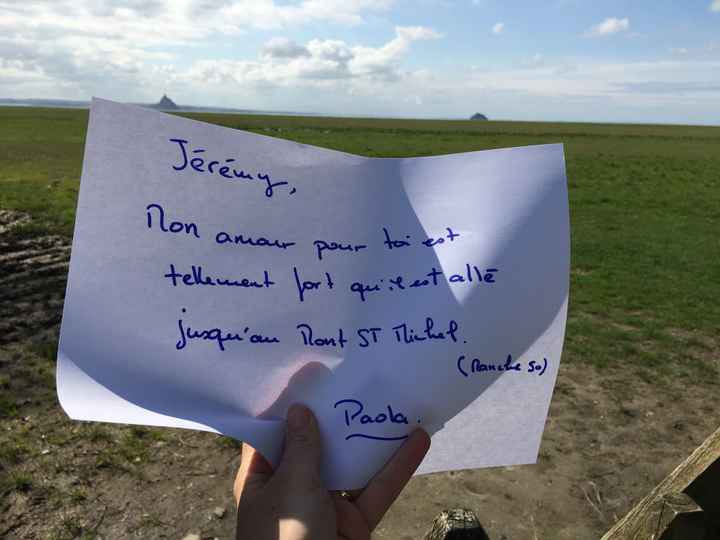 Jérémy,
Mon amour pour toi est
tellement fort qu'il est allé
jusqu'au Mont ST Michel.
(Manche 50)
Paola.